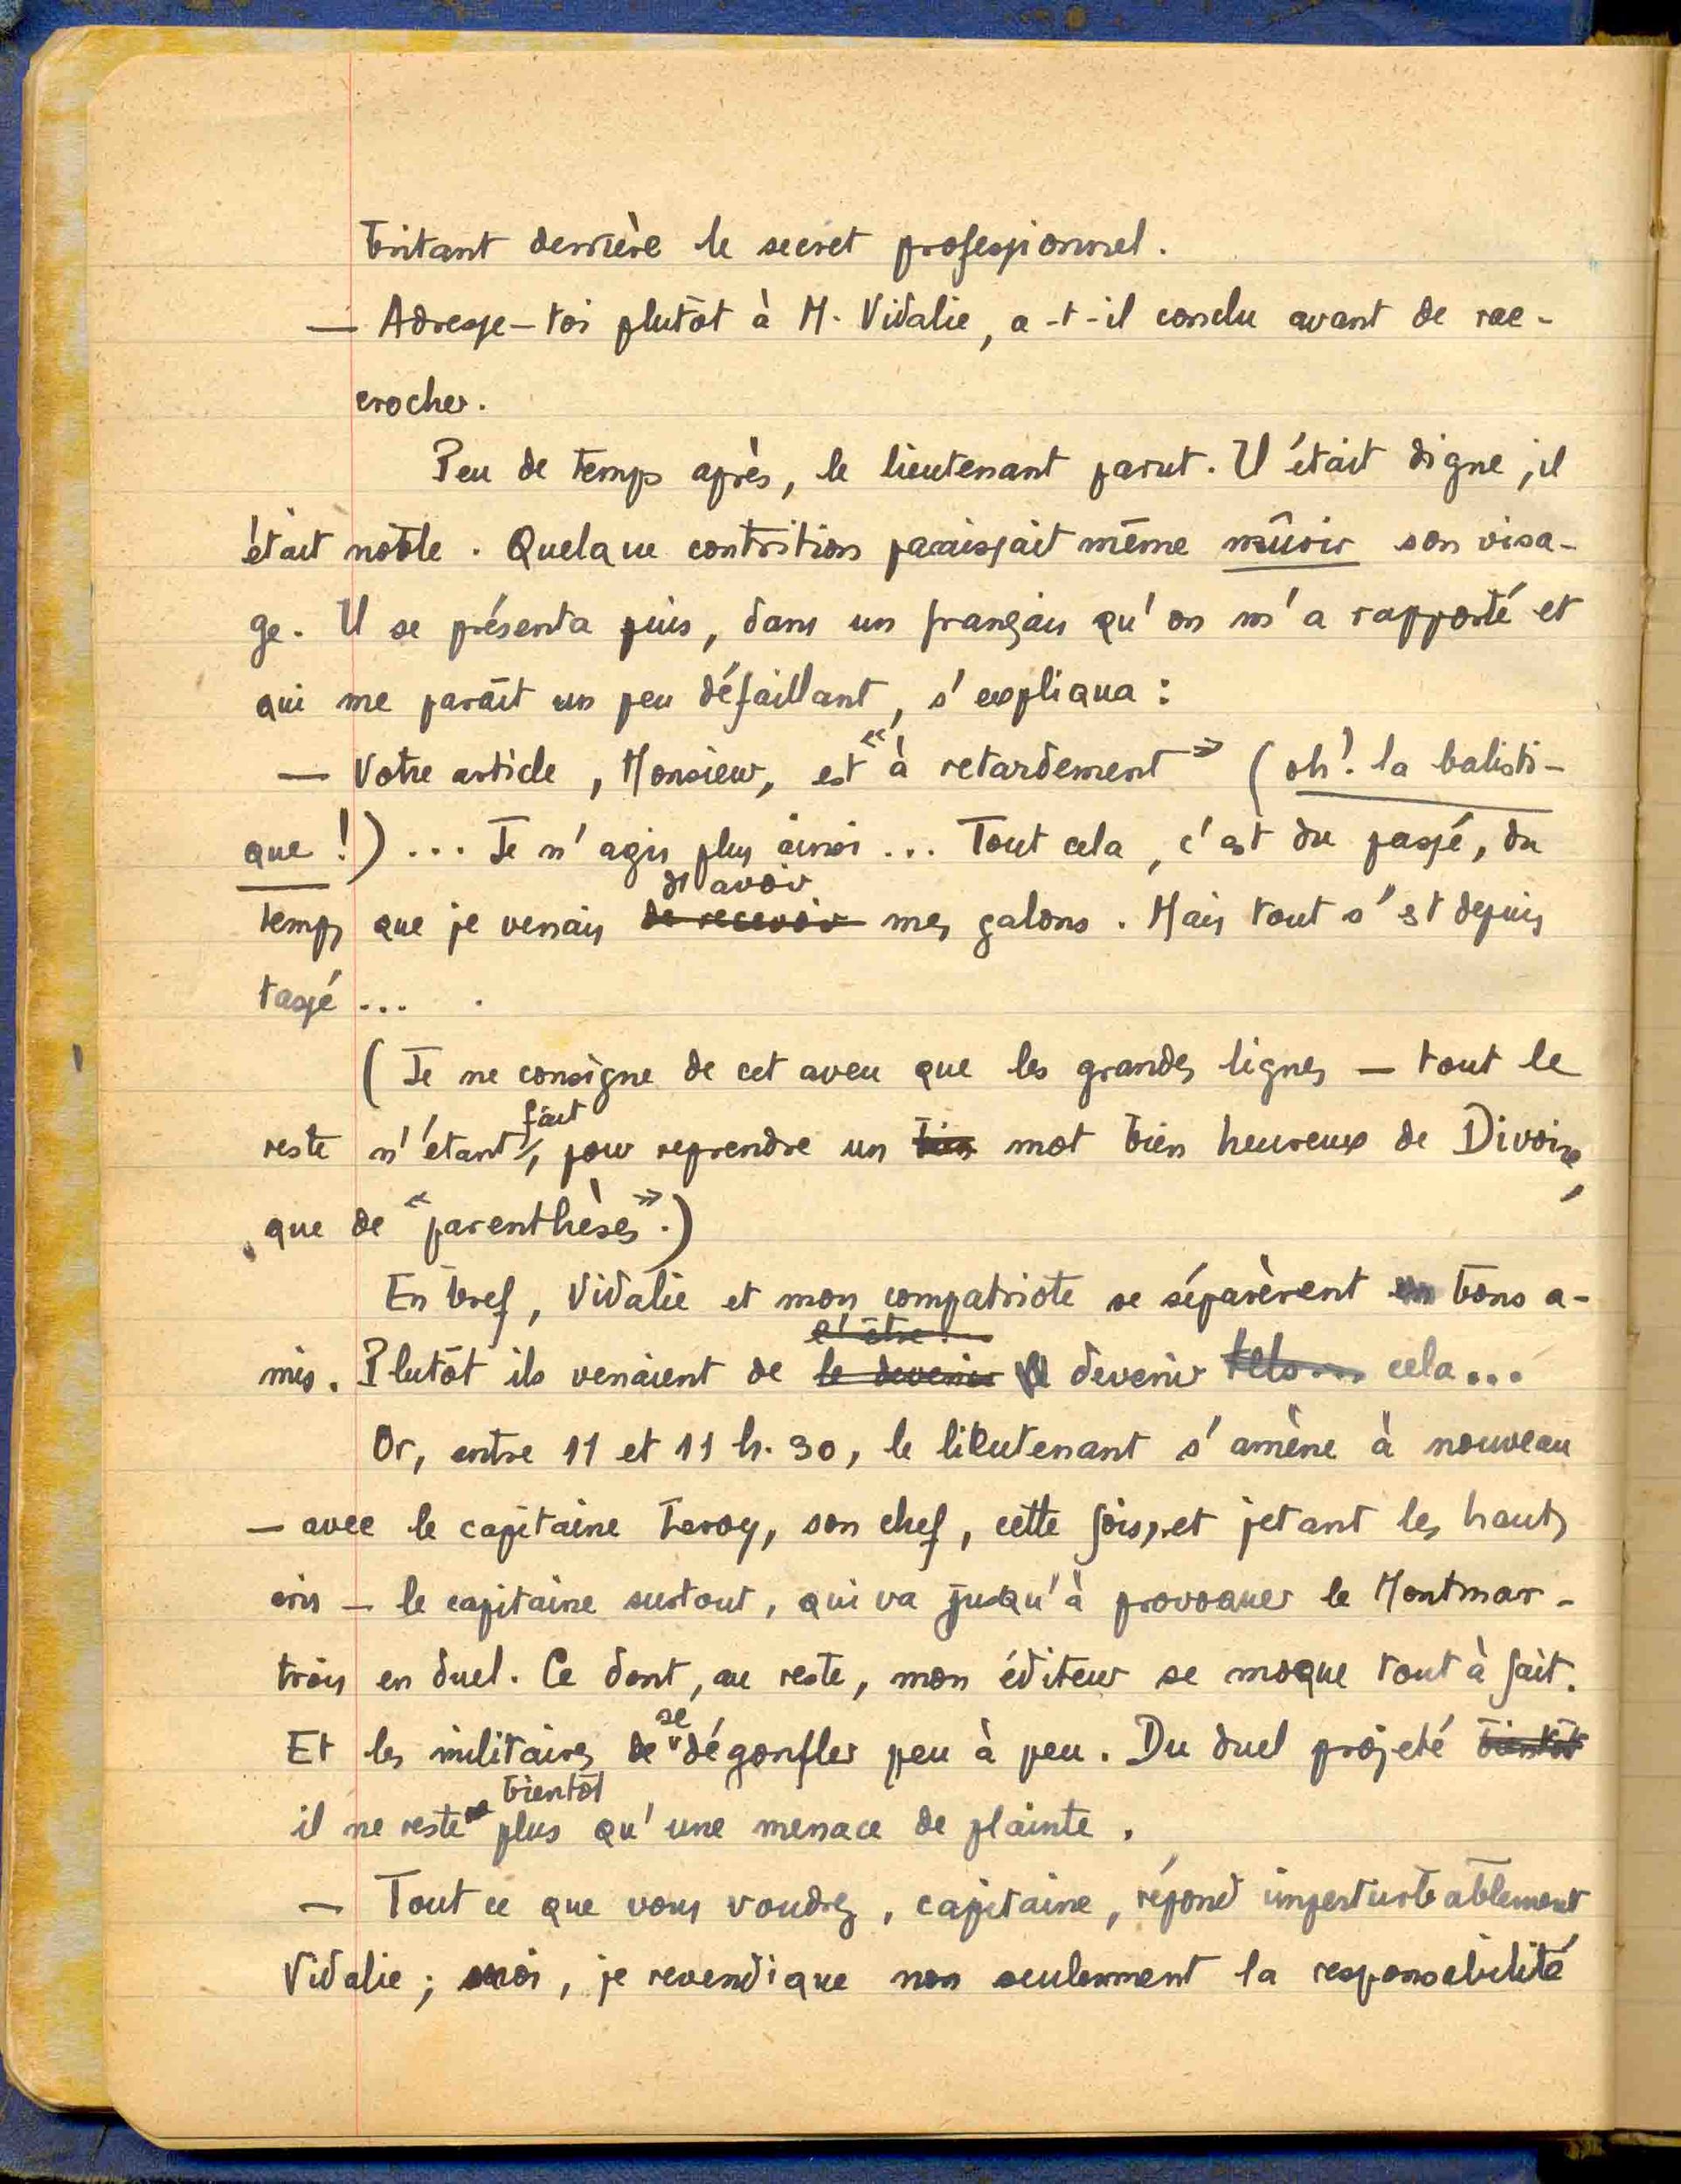 britant derrière le secret professionnel.
— Adresse-toi plutôt à M. Vidalie, a-t-il conclu avant de rac-
crocher.
Peu de temps après, le lieutenant parut. Il était digne, il
était noble. Quelque contrition paraissait même mûrir son visa-
ge. Il se présenta puis, dans un français qu'on m'a rapporté et
qui me paraît un peu défaillant, s'expliqua :
— Votre article, Monsieur, est « à retardement » (oh! la balisti-
que !) ... Je n'agis plus ainsi ... Tout cela, c'est du passé, du
d'avoir
temps que je venais de recevoir mes galons. Mais tout s'est depuis
tassé ...
(Je ne consigne de cet aveu que les grandes lignes — tout le
fait
reste n'étant, pour reprendre un bien mot bien heureux de Divoire,
que de « parenthèses ».)
En bref, Vidalie et mon compatriote se séparèrent en bons a-
l'être ...
mis. Plutôt ils venaient de le devenir devenir tels ... cela ...
Or, entre 11 et 11 h. 30, le lieutenant s'amène à nouveau
— avec le capitaine , son chef, cette fois, et jetant les hauts
cris — le capitaine surtout, qui va jusqu'à provoquer le Montmar-
trois en duel. Ce dont, au reste, mon éditeur se moque tout à fait.
se
Et les militaires de dégonfler peu à peu. Du duel projeté bientôt
bientôt
il ne reste plus qu'une menace de plainte.
— Tout ce que vous voudrez, capitaine, répond imperturbablement
Vidalie ; moi, je revendique non seulement la responsabilité